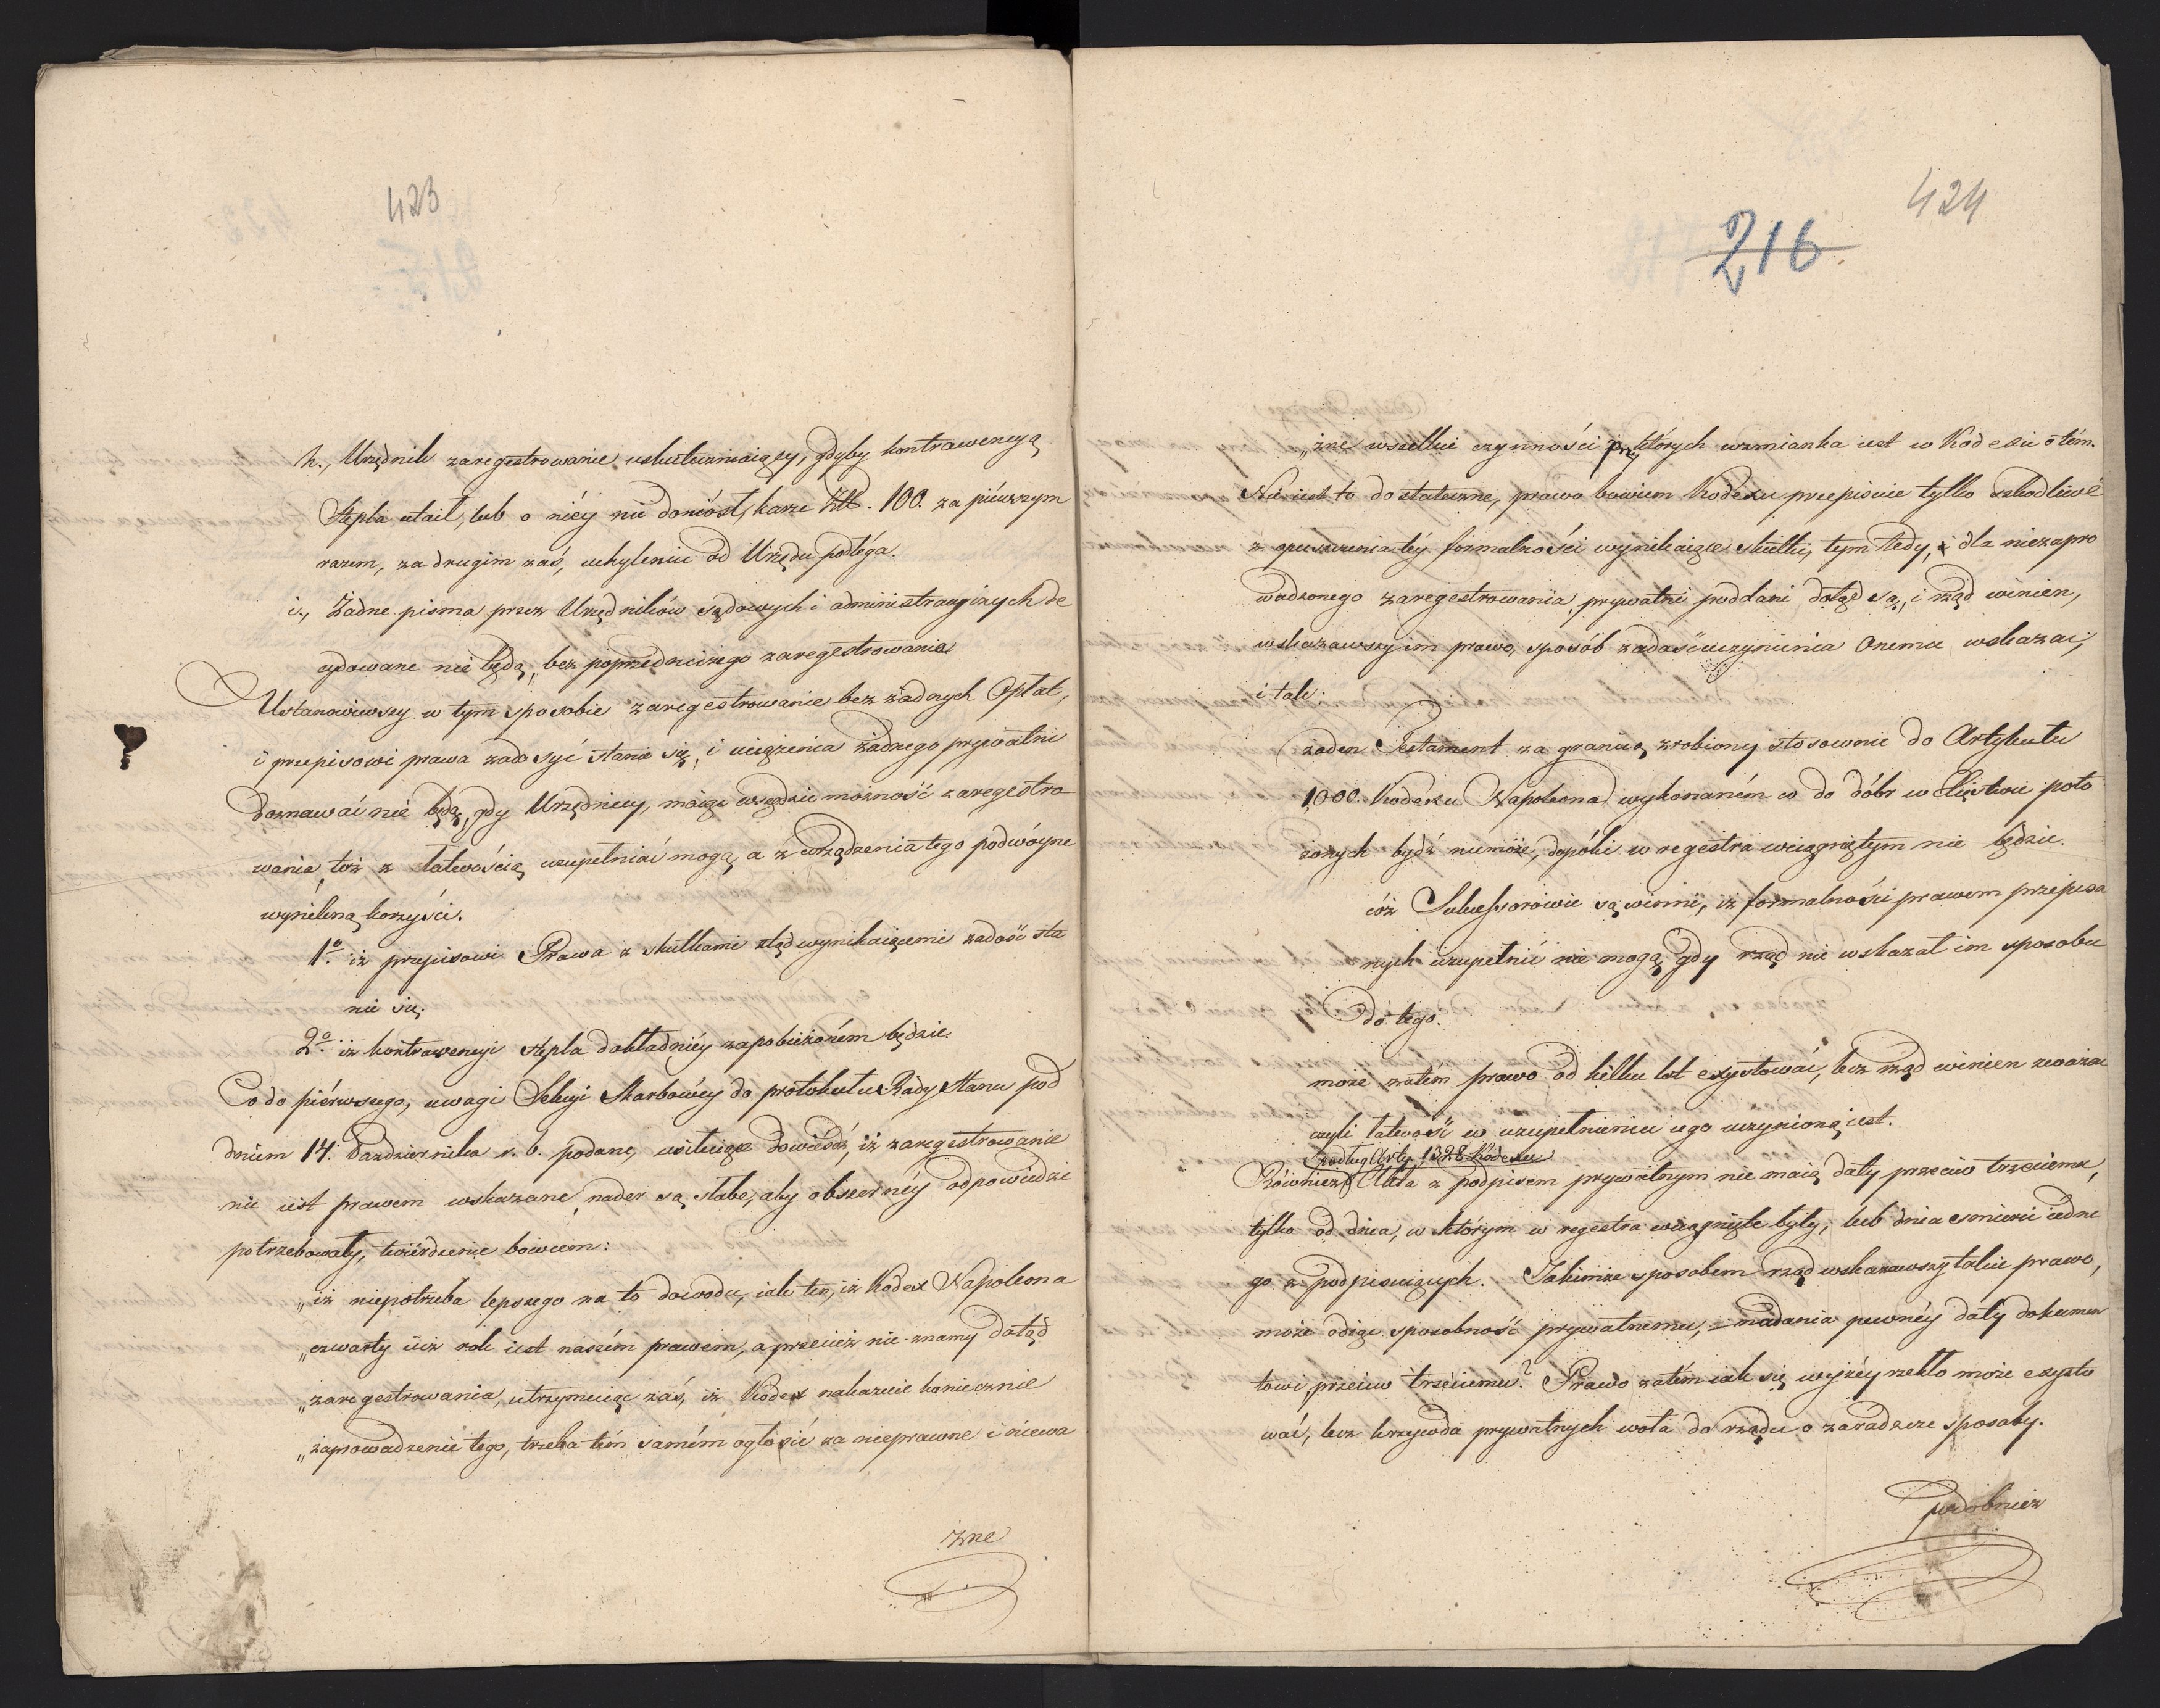 423
h., Urzędnik zaregestrowanie uskuteczniaiący, gdyby kontrawencyą
Stępla utaił, lub o niéy nie doniósł, karze Złł. 100. za piérwszym
razem, za drugim zaś, uchyleniu od Urzędu podléga.
i., Żadne pisma przez Urzędników sądowych i administracyinych de
cydowane nie będą, bez poprzedniczego zaregestrowania.
Ustanowiwszy w tym sposobie zaregestrowanie bez żadnych Opłat,
i przepisowi prawa zadosyć stanie się, i uciążenia żadnego prywatni
doznawać nie będą, gdy Urzędnicy, maiąc wszędzie możność zaregestro
wania, toż z łatwością uzupełniać mogą, a z urządzenia tego podwóyne
wynikną korzyści.
1º. iż przepisowi Prawa z skutkami ztąd wynikaiącemi zadość sta
nie się.
2º. iż kontrawencyi stępla dokładniéy zapobieżoném będzie.
Co do piérwszego, uwagi Sekcyi Skarbowéy do protokułu Rady Stanu pod
dniem 14. Października r. b. podane, usiłuiące dowieśdź, iż zaregestrowanie
nie iest prawem wskazane, nader są słabe, aby obszernéy odpowiedzi
potrzebowały, twiérdzenie bowiem:
„iż niepotrzeba lepszego na to dowodu, iak ten, iż Kodex Napoleona
„czwarty iuż rok iest naszém prawem, a przecież nie znamy dotąd
„zaregestrowania, utrzymuiąc zaś, iż Kodex nakazuie koniecznie
„zaprowadzenie tego, trzeba tém samém ogłosić za nieprawne i niewa
żne
424
216
„żne wszelkie czynności przy których wzmianka iest w Kodexie o tém.
Nie iest to dostateczne, prawo bowiem Kodexu przepisuie tylko szkodliwé
z opuszczenia téy formalności wynikaiące skutki, tym tedy, i dla niezapro
wadzonego zaregestrowania, prywatni poddani dotąd są, i rząd winien,
wskazawszy im prawo, sposób zadośćuczynienia onemu wskazać;
i tak:
żaden Testament za granicą zrobiony stosownie do Artykułu
1,000. Kodexu Napoleona wykonaném co do dóbr w Xięstwie poło
żonych bydź niemoże, dopóki w regestra wciągniętym nie będzie.
cóż Sukcessorowie są winni, iż formalności prawem przepisa
nych uzupełnić nie mogą, gdy rząd nie wskazał im sposobu
do tego.
może zatem prawo od kilku lat exystować, lecz rząd winien zważać
czyli łatwość w uzupełnieniu iego uczynioną iest.
podług Arty. 1328 Kodexu
Również Akta z podpisem prywatnym nie maią daty przeciw trzeciemu,
tylko od dnia, w którym w regestra wciągnięte były, lub dnia śmierci iedne
go z podpisuiących. Jakimże sposobem rząd wskazawszy takie prawo,
może odiąć sposobność prywatnemu, nadania pewnéy daty dokumen
towi przeciw trzeciemu? Prawo zatém iak się wyżéy rzekło może exysto
wać, lecz krzywda prywatnych woła do rządu o zaradcze sposoby.
podobnież